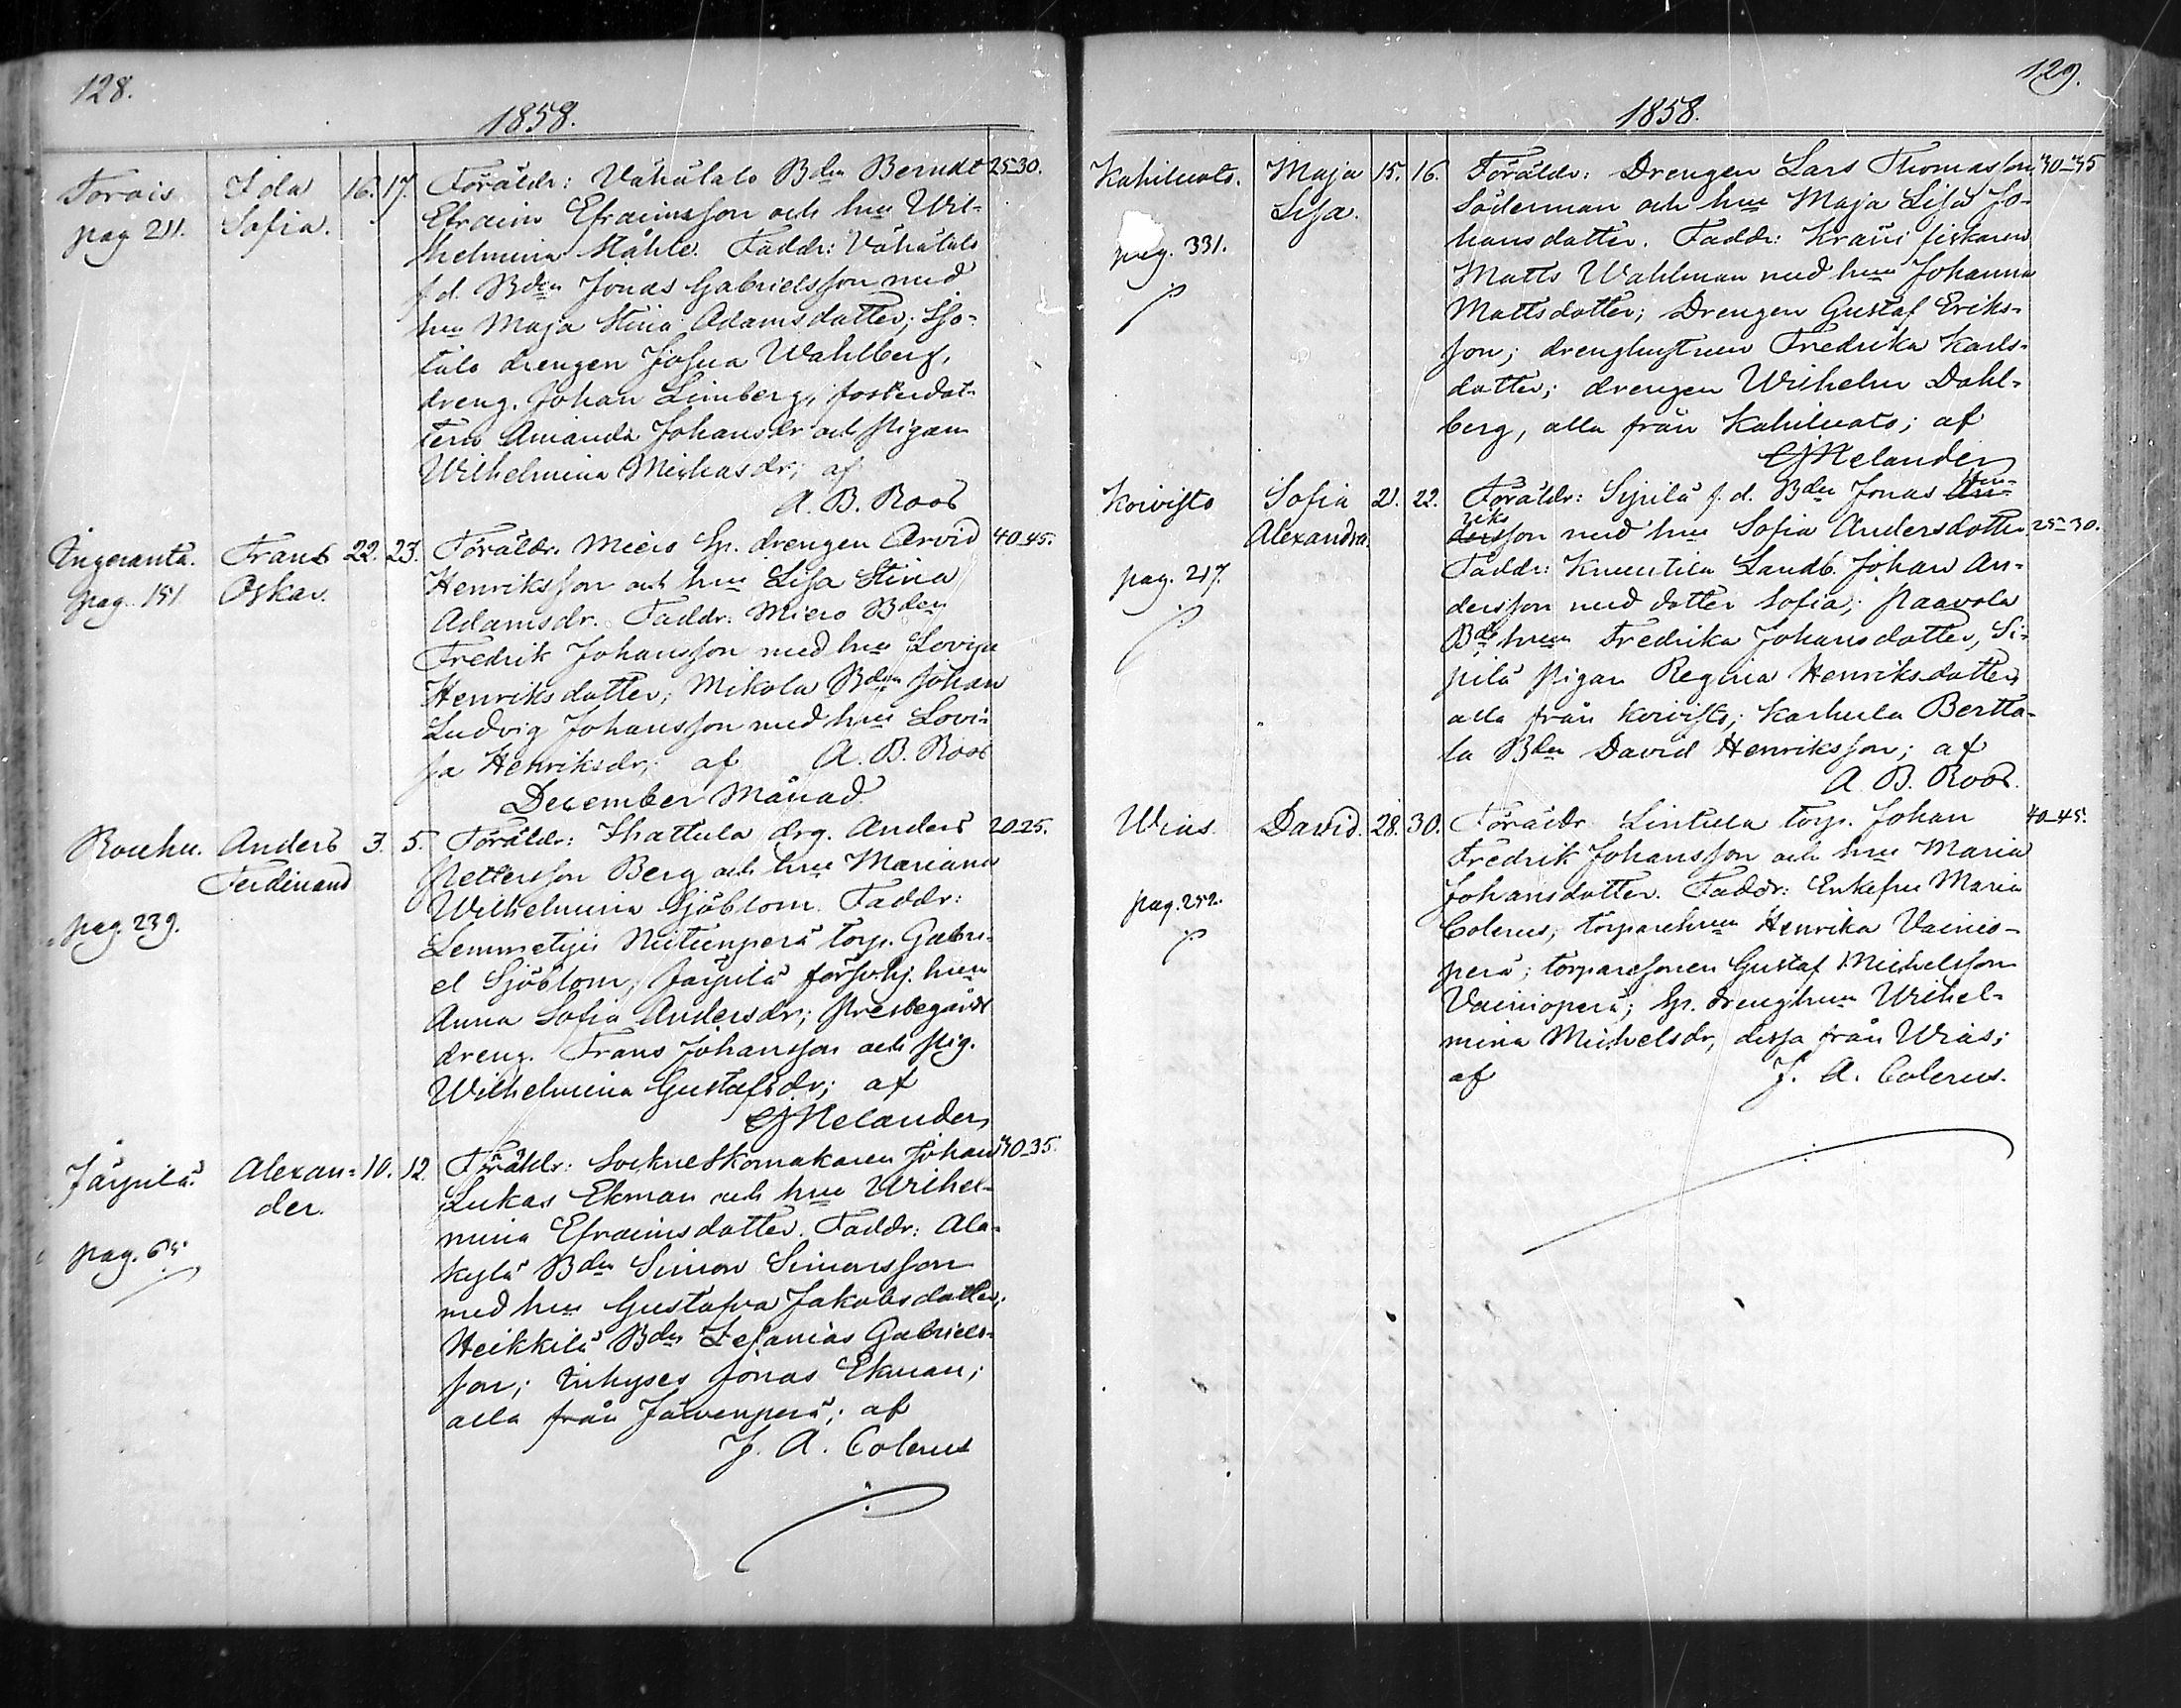 128.
1858.
Torais Ida 16. 17. Föräldr: Vähätalo Bdn Berndt 25-30.
pag 211. Sofia. Efraim Efraimsson och hu Wil-
helmina Ståhle. Faddr: Vähätalo
f.d. Bden Jonas Gabrielsson med
hu Maja Stina Adamsdotter; Iso-
talo drengen Josua Wahlberg,
dreng. Johan Limberg, fosterdot-
tern Amanda Johansdr och pigan
Wilhelmina Michasdr; af
A. B. Roos
Ingeranta. Frans 22. 23. Föräldr. Mieis Sp. drengen Arvid 40-45.
pag. 151 Oskar. Henriksson och hu Lisa Stina
Adamsdr. Faddr. Miero Bden
Fredrik Johansson med hu Lovisa
Henriksdotter; Mikola Bden Johan
Ludvig Johansson med hu Lovi-
sa Henriksdr; af A. B. Roos
December Månad.
Rouhu. Anders 3. 5. Föräldr: Thattula drg. Anders 20-25.
Ferdinand Pettersson Berg och hu Mariana
pag. 239. Wilhelmina Sjöblom. Faddr:
Lemmetyis Niitunperä torp. Gabri-
el Sjöblom; Järpilä hu
Anna Sofia Andersdr; Prestegårds
dreng. Frans Johansson och pig.
Wilhelmina Gustafsdr; af
CJNelander
Järpilä Alexan- 10. 12. Föräldr: Sockneskomakaren Johan 30-35.
der. Lukas Ekman och hu Wilhel-
pag. 65 mina Efraimsdotter. Faddr: Ala-
kylä Bdn Simon Simonsson
med hu Gustafva Jakobsdotter;
Heikkilä Bdn Zefanias Gabriels-
son; Inhyses Jonas Ekman;
alla från Järvenperä; af
J. A. Colerus
129.
1858.
Kahiluoto. Maja 15. 16. Föräldr: Drengen Lars Thomasson 30-35
Lisa. Söderman och hu Maja Lisa Jo-
pag. 331. hansdotter. Faddr: Kräni fiskaren
Matts Wahlman med hu Johanna
Mattsdotter; Drengen Gustaf Eriks-
son; drenghustrun Fredrika Karls-
dotter; drengen Wilhelm Dahl-
berg, alla från Kahiluoto; af
CJNelander
Koivisto Sofia 21. 22. Föräldr: Sipilä f.d. Bdn Jonas Hen-
Alexandra. riksson med hu Sofia Andersdotter 25-30.
pag. 217. Faddr: Knuutila Landb. Johan An-
dersson med dotter Sofia; Paavola
Bdehun Fredrika Johansdotter, Si-
pilä pigan Regina Henriksdotter
alla från Koivisto; Karhula Bertta-
la Bdn David Henriksson; af
A. B. Roos.
Wias David. 28. 30. Föräldr Lintula torp. Johan 40-45.
Fredrik Johansson och hu Maria
Johansdotter. Faddr: Enkefru Maria
pag. 252. Colerus; torparehun Henrika Vainio-
perä; torparesonen Gustaf Michelsson
Vainioperä; Sp. drenghun Wilhel-
mina Michelsdr, dessa från Wias;
af J. A. Colerus.